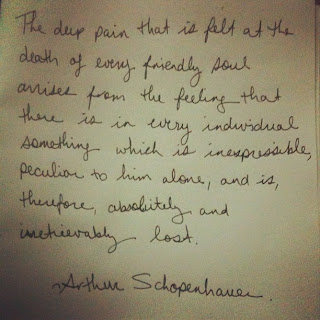 The deep pain that is felt at the
death of every friendly soul
arises from the feeling that
there is in every individual
something which is inexpressible,
peculiar to him alone, and is,
therefore, absolutely and
irretrievably lost.
~Arthur Schopenhauer.